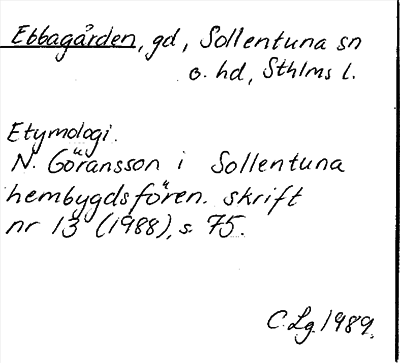 Ebbagården, gd, Sollentuna sn
o. hd, Sthlms l.
Etymologi.
N. Göransson i Sollentuna
hembygdsfören. skrift
nr 13 (1988), s. 75.
C. Lg. 1989.